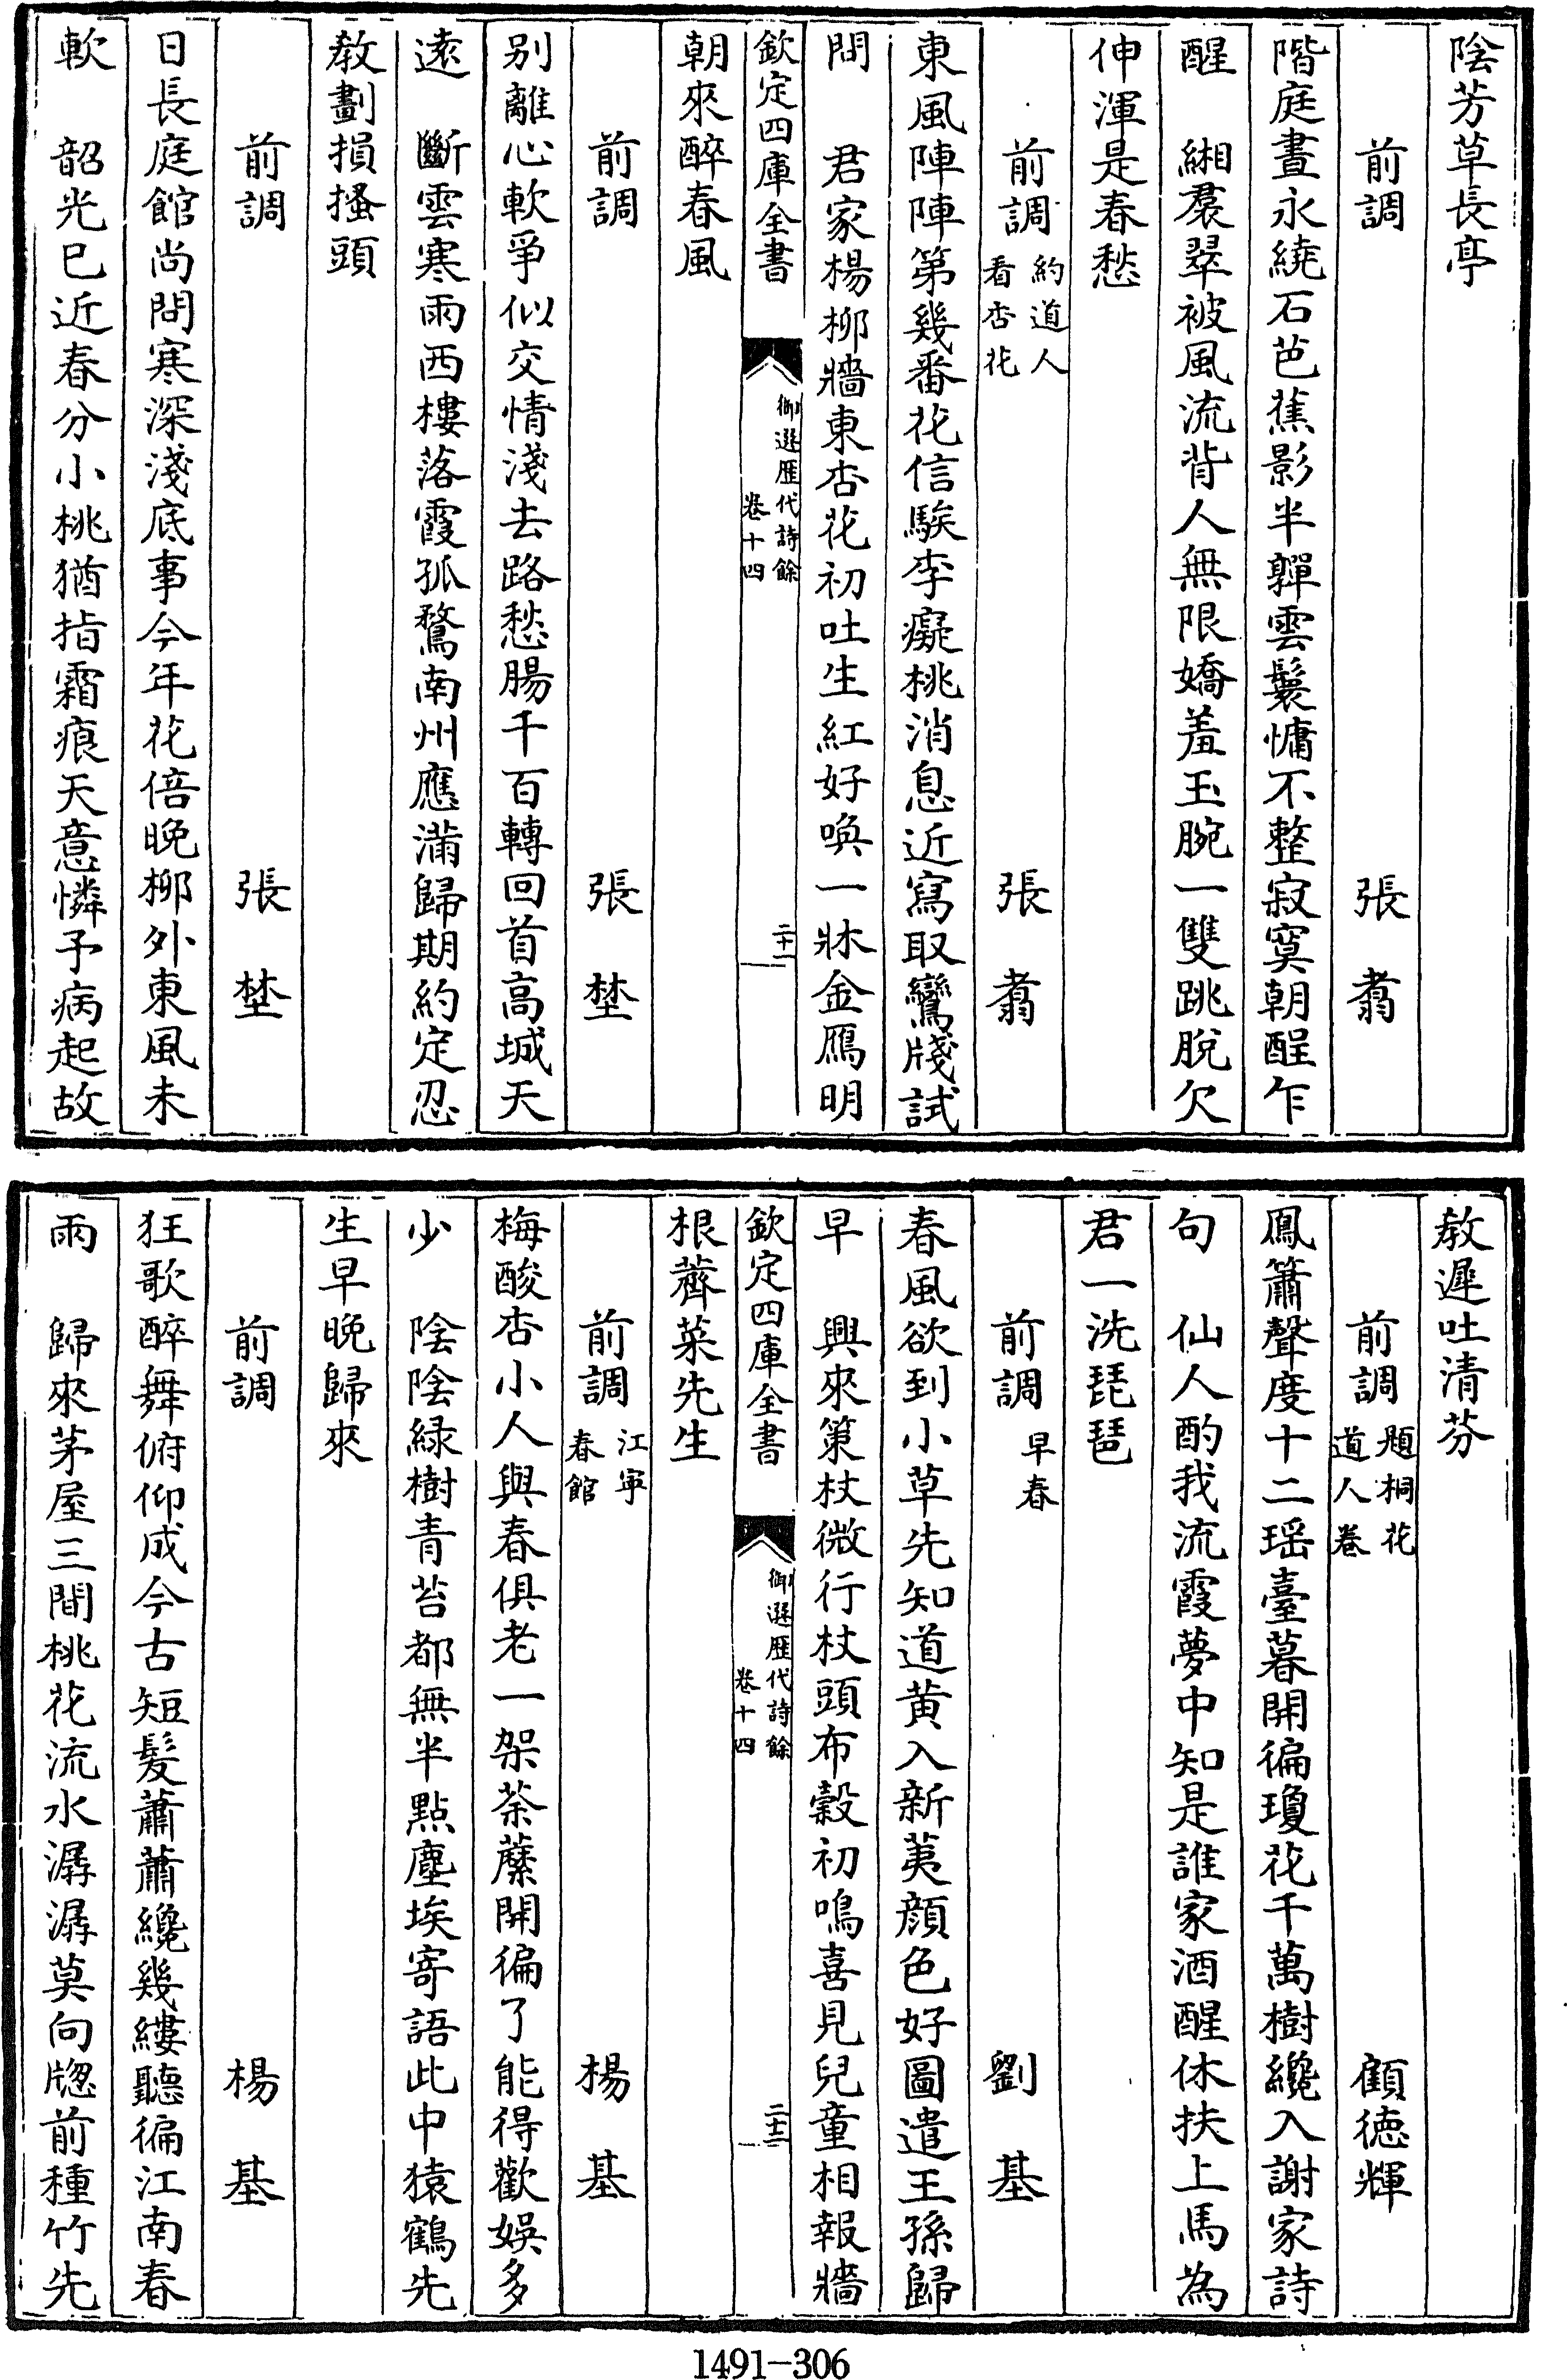 陰芳草長亭
前調　張翥
階庭晝永繞石芭蕉影半嚲雲鬟慵不整寂寞朝酲乍
醒　緗裠翠被風流背人無限嬌羞玉腕一雙跳脫欠
伸渾是春愁
前調約道人看杏花　張翥
東風陣陣第幾番花信騃李癡桃消息近寫取鸞牋試
問　君家楊柳牆東杏花初吐生紅好喚一牀金鴈明
欽定四庫全書　御選歷代詩餘卷十四　二十一
朝來醉春風
前調　張埜
别離心軟爭似交情淺去路愁腸千百轉回首高城天
遠　斷雲寒雨西樓落霞孤鶩南州應滿歸期約定忍
教劃損搔頭
前調　張埜
日長庭館尚問寒深淺底事今年花倍晚柳外東風未
軟　韶光已近春分小桃猶指霜痕天意憐予病起故
教遲吐清芬
前調題桐花道人卷　顧德輝
鳳簫聲度十二瑶臺暮開徧瓊花千萬樹纔入謝家詩
句　仙人酌我流霞夢中知是誰家酒醒休扶上馬為
君一洗琵琶
前調早春　劉基
春風欲到小草先知道黄入新荑顔色好圖遣王孫歸
早　興來策杖微行杖頭布穀初鳴喜見兒童相報牆
欽定四庫全書　御選歷代詩餘卷十四　二十二
根薺菜先生
前調江寧春館　楊基
梅酸杏小人與春俱老一架荼䕷開徧了能得歡娛多
少　陰陰緑樹青苔都無半點塵埃寄語此中猿鶴先
生早晚歸來
前調　楊基
狂歌醉舞俯仰成今古短髮蕭蕭纔幾縷聽徧江南春
雨　歸來茅屋三間桃花流水潺潺莫向牕前種竹先
1491-306